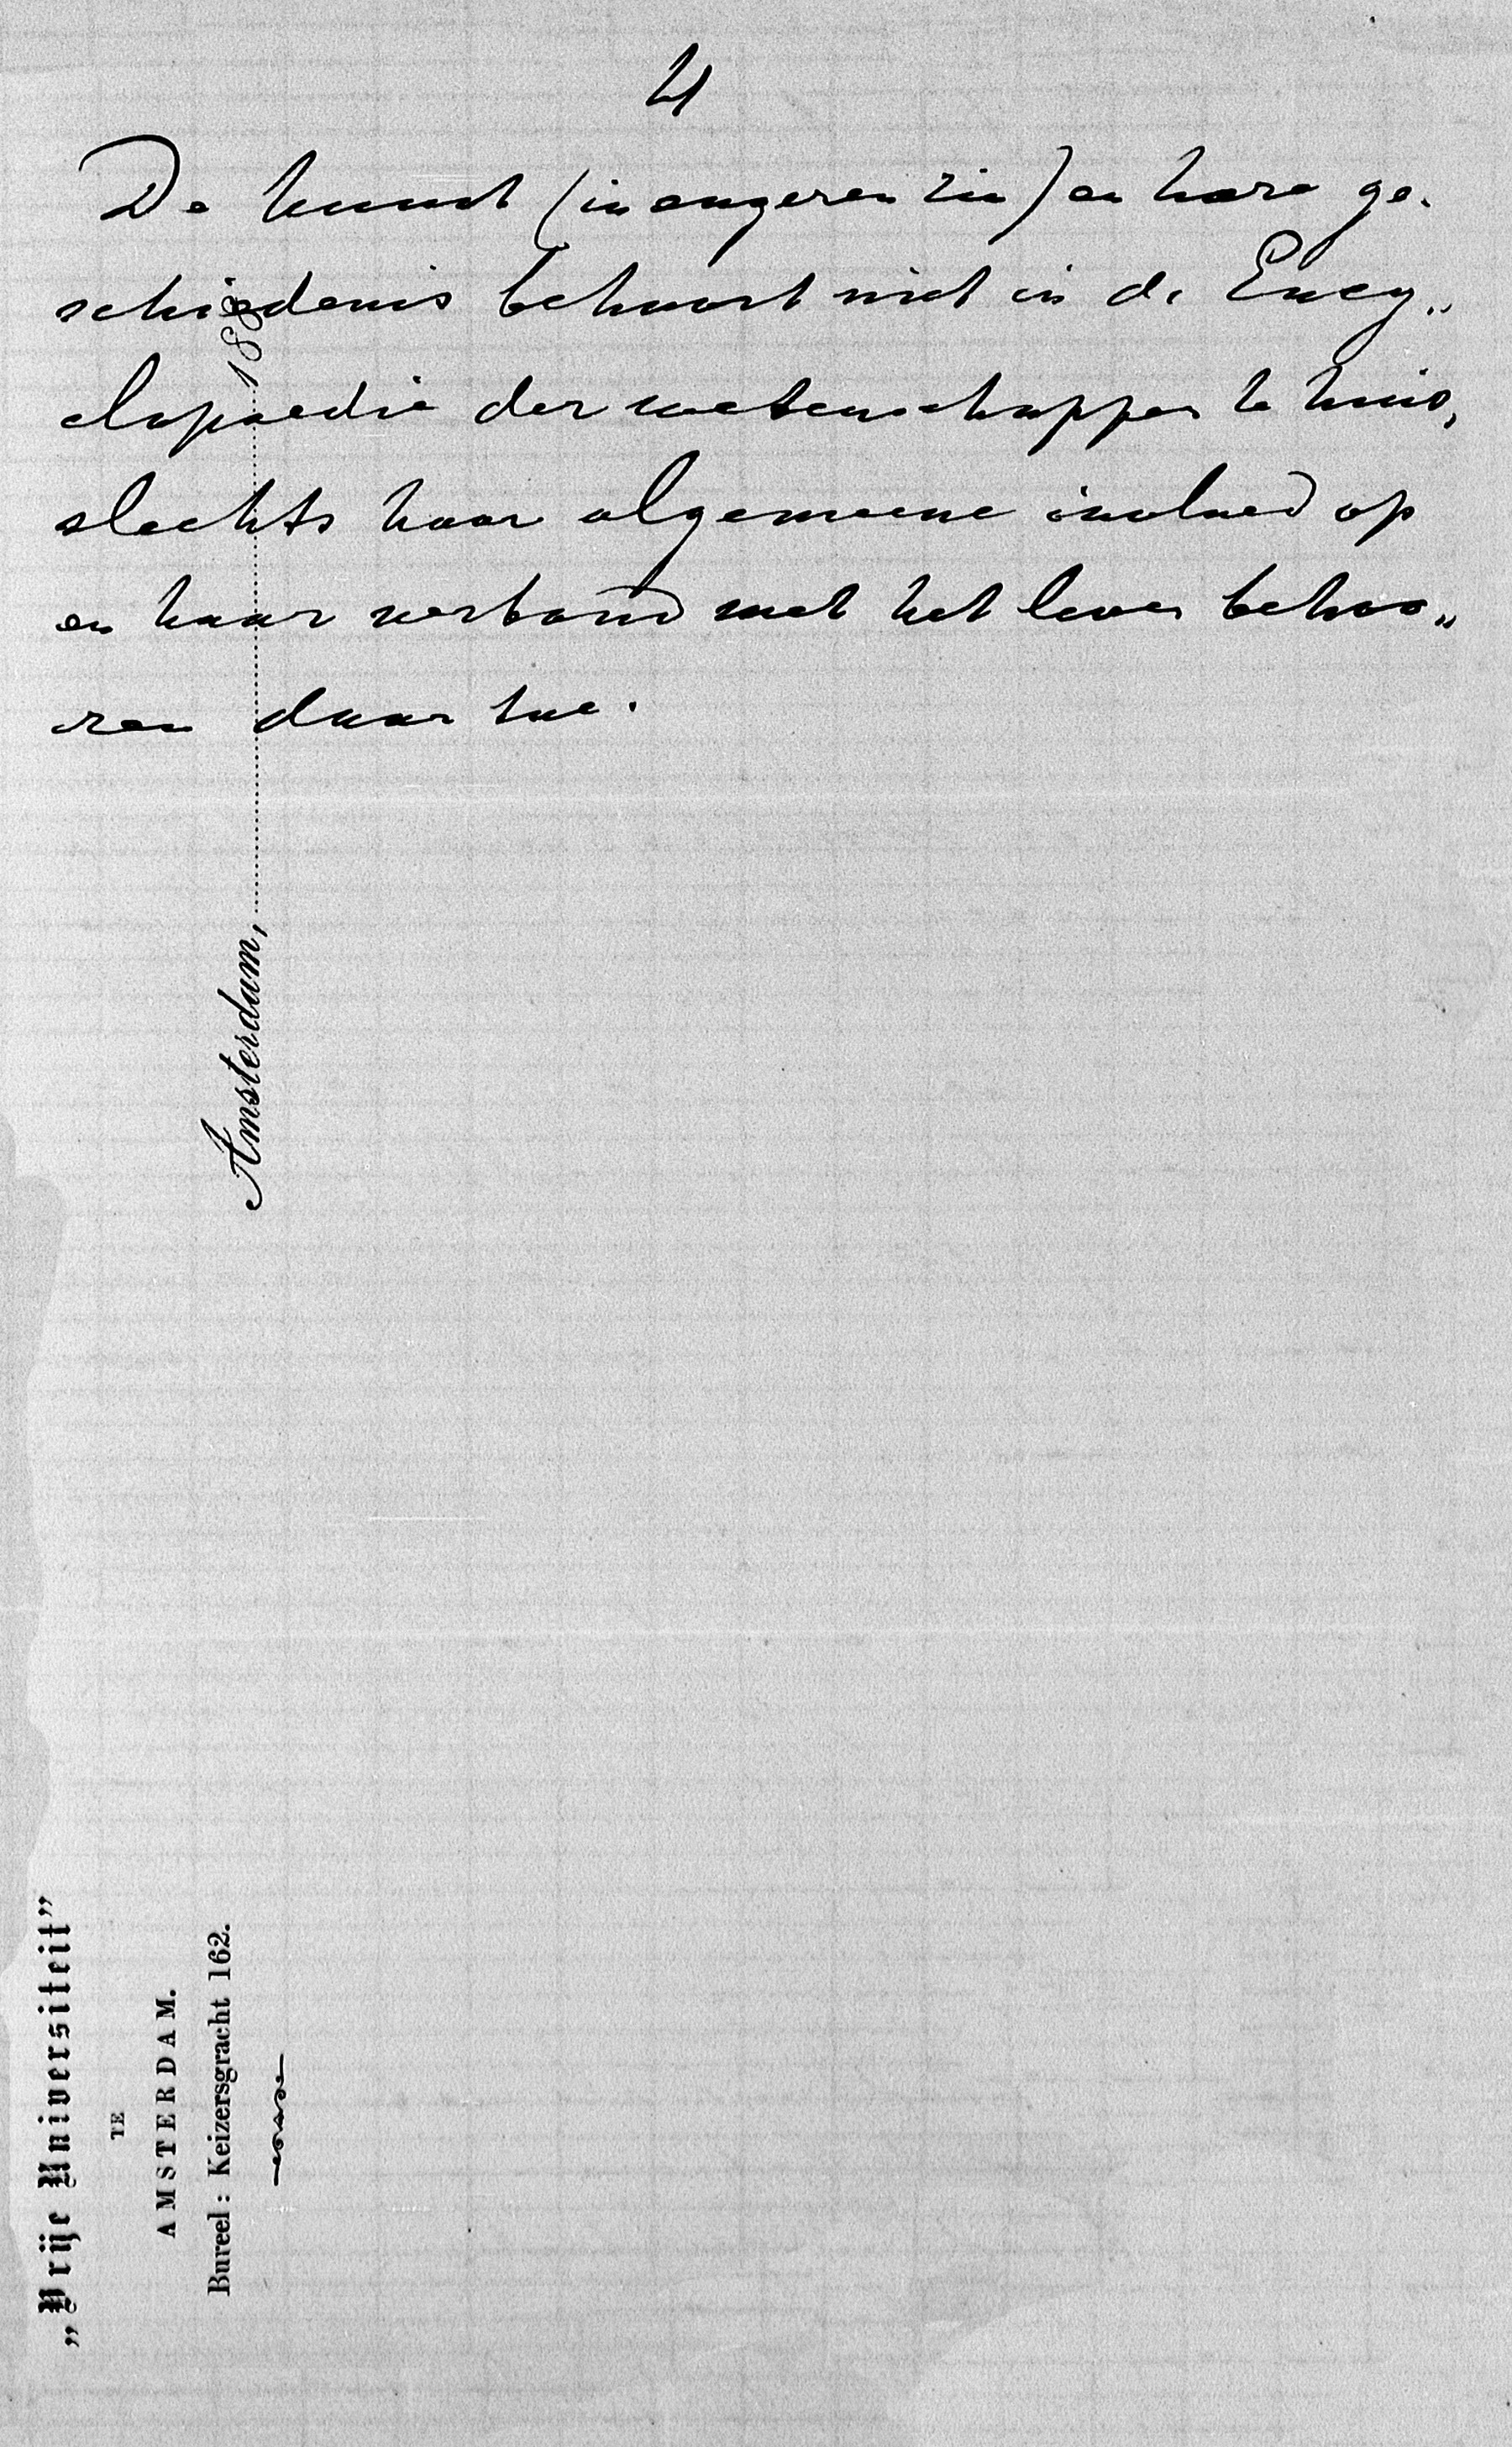 4
De kunst (in engeren zin) en hare ge-
schiedenis behoort niet in de Ency„
clopaedie der wetenschappen te huis,
slechts haar algemeene invloed op
en haar verband met het leven behoo„
ren daar toe.
Amsterdam, 188
„Vrije Universiteit”
TE
AMSTERDAM.
Bureel: Keizersgracht 162.